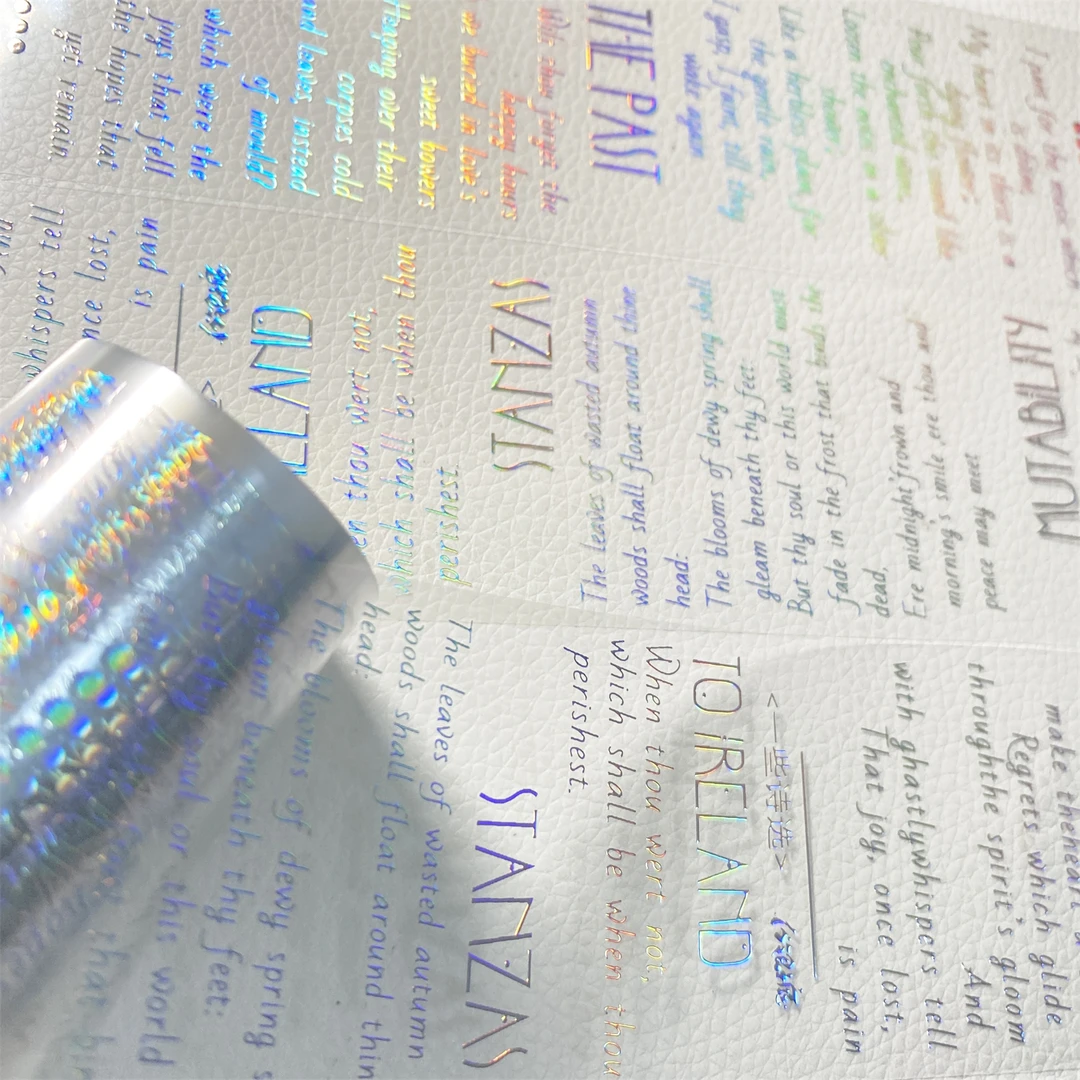 I pine for the music which
is divine
My heart in its thirst is a
dying flower;
Pour forth the sound like
enchanted wine,
Loosen the notes in a silver
shower;
Like a herbless plain, for
the gentle rain,
I gasp, I faint, till they
wake again.
THE PAST
Wilt thou forget the
happy hours
we buried in love's
sweet bowers
Heaping over their
corpses cold
and leaves, instead
of mould?
which were the
joys that fell
the hopes that
yet remain.
whispers tell
once lost,
is pain
When thou wert not,
which shall be when thou
perishest
STANZAS
The leaves of wasted autumn
woods shall float around thine
head:
The blooms of dewy spring shall
gleam beneath thy feet:
But thy soul or this world must
fade in the frost that binds the
dead,
Ere midnight'frown and
morning's smile, ere thou and
peace may meet
MUTABILITY
make theheart
Regrets which glide
throughthe spirit's gloom
And
with ghastlywhispers tell
That joy, once lost,
is pain
<一些诗选>
TO IRELAND
When thou wert not,
which shall be when thou
perishest.
STANZAS
The leaves of wasted autumn
woods shall float around thin
head:
The blooms of dewy spring s
gleam beneath thy feet:
But thy soul or this world